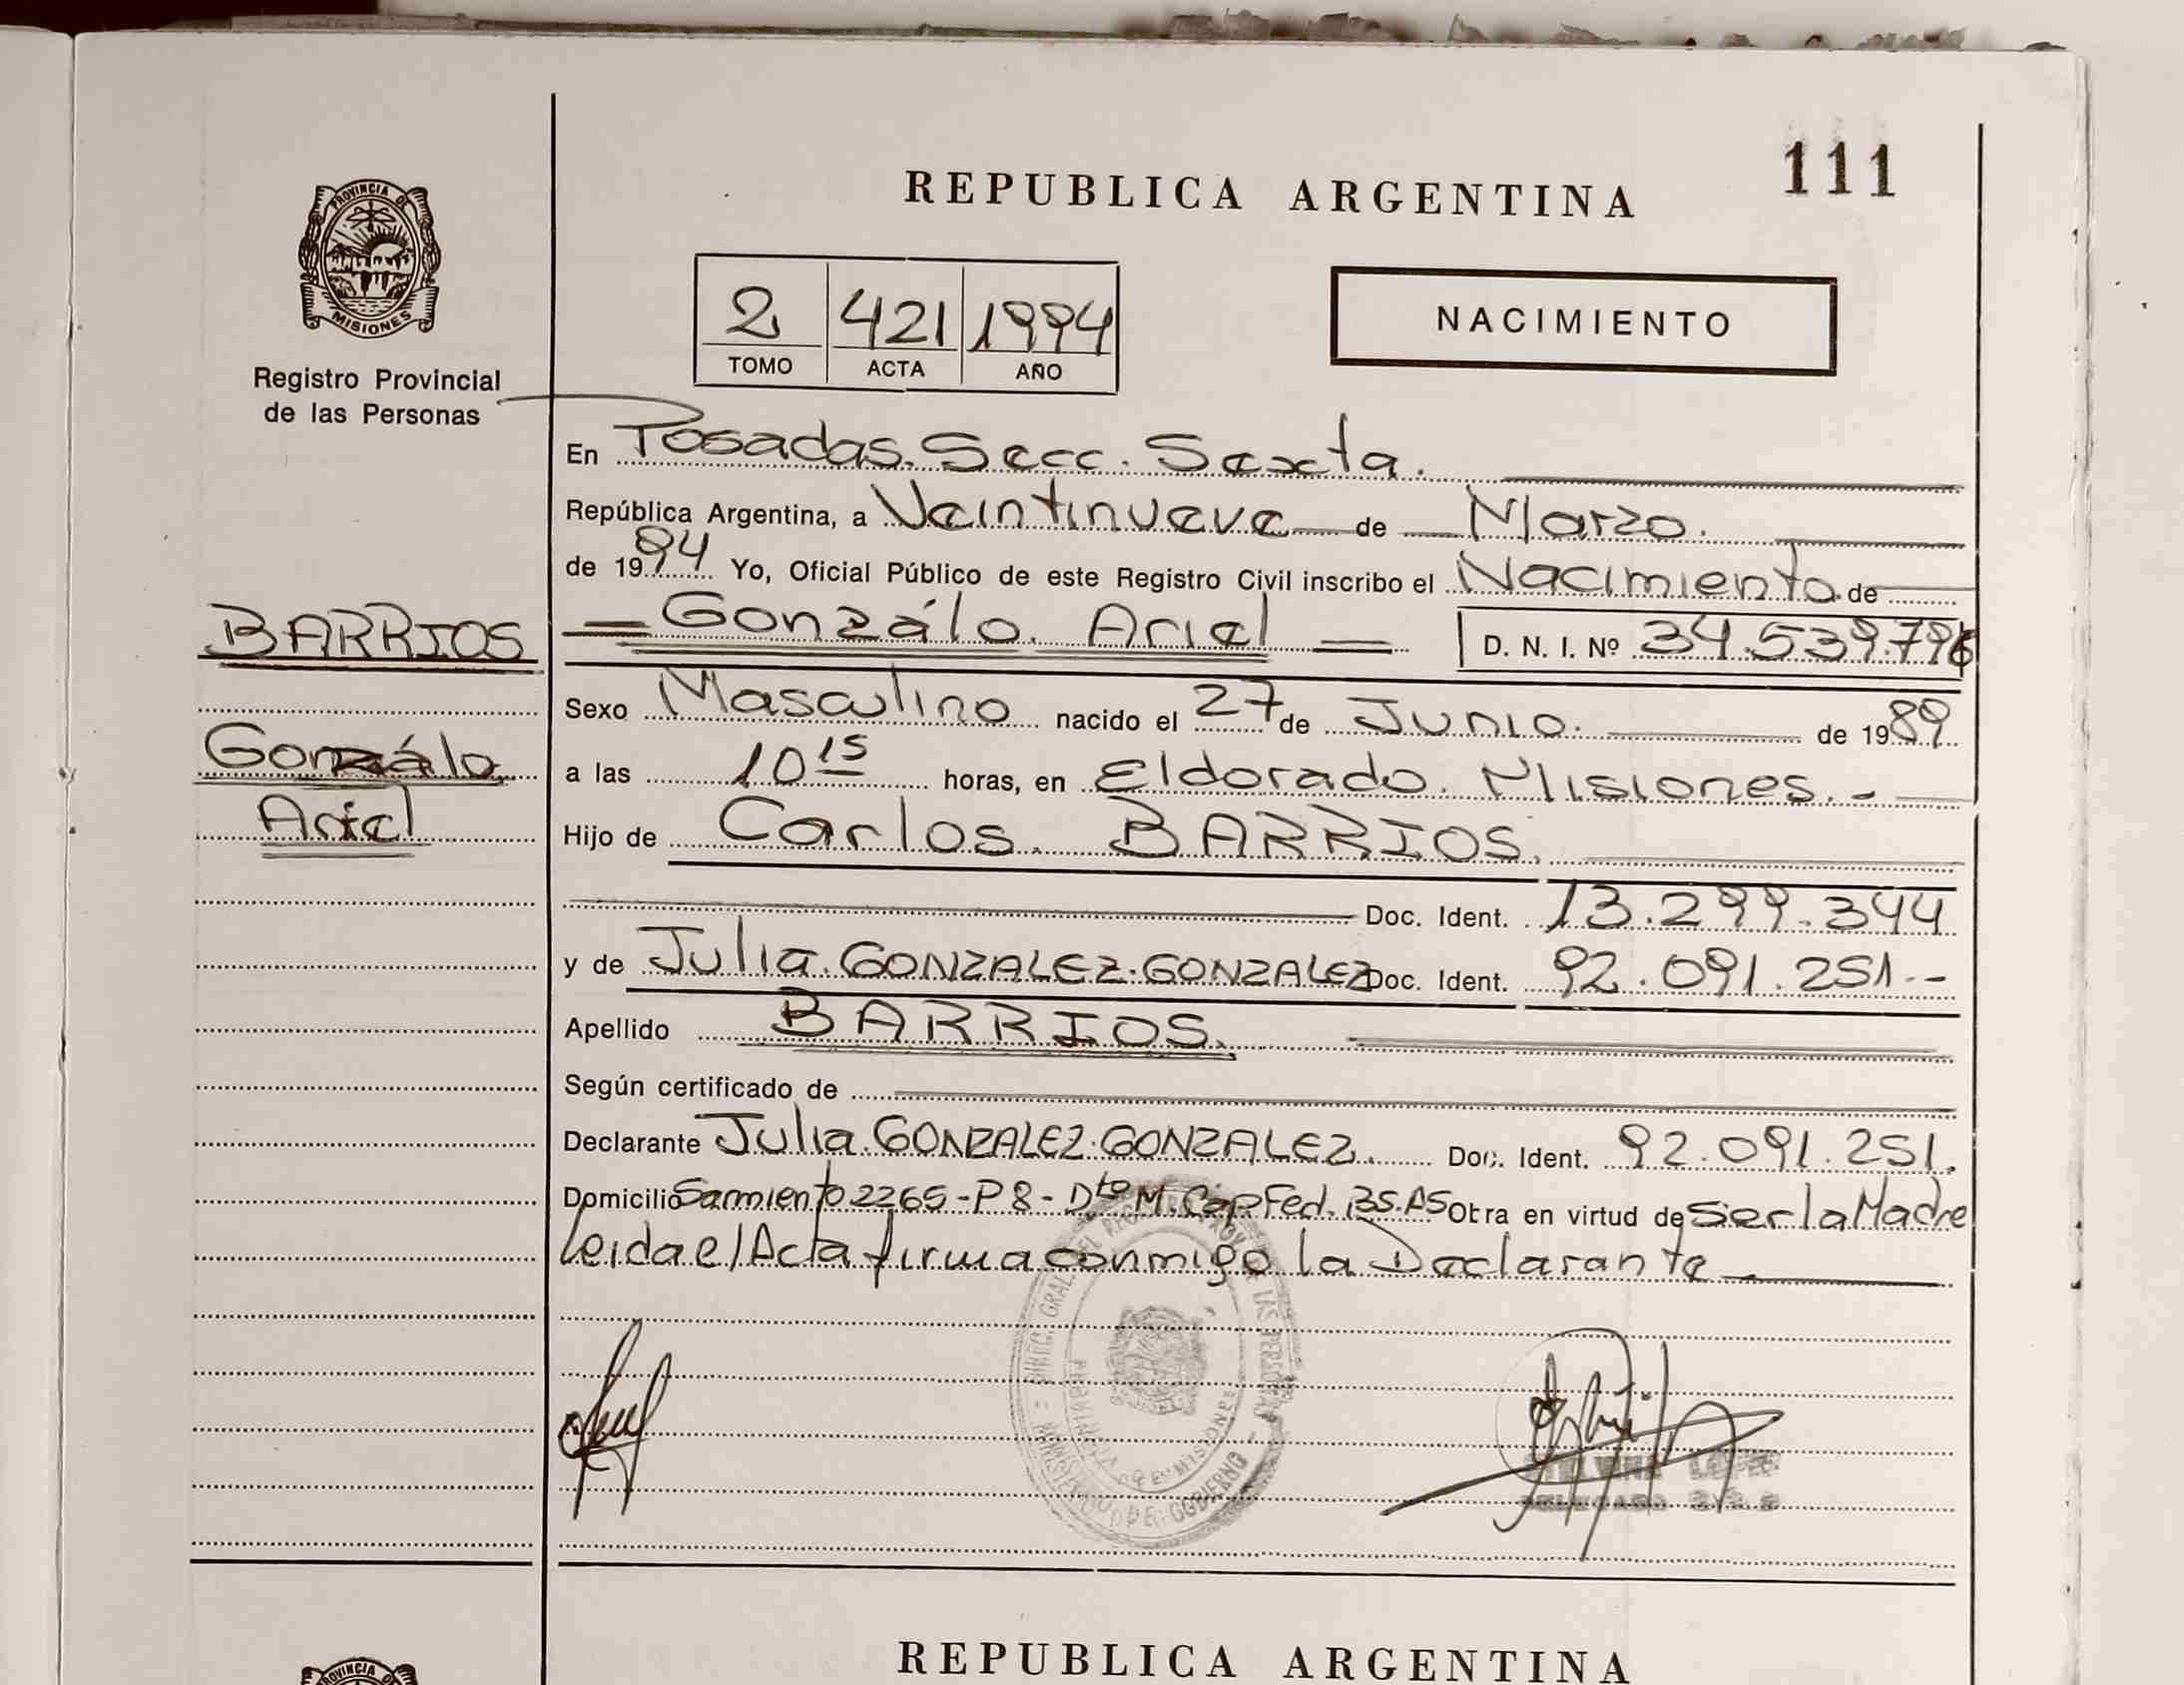 111
REPUBLICA ARGENTINA
PROVINCIA DE
MISIONES
Registro Provincial
de las Personas
2 421 1994
TOMO ACTA AÑO
NACIMIENTO
En Posadas. Secc. Sexta.
República Argentina, a Veintinueve de Marzo.
de 1994 Yo, Oficial Público de este Registro Civil inscribo el Nacimiento de
Gonzálo. Ariel D. N. I. Nº 34.539.796
BARRIOS
Gonzálo
Ariel
Sexo Masculino nacido el 27 de Junio. de 1989
a las 10 15 horas, en Eldorado. Misiones. -
Hijo de Carlos. BARRIOS.
Doc. Ident. 13.299.344
y de Julia. GONZALEZ. GONZALEZ Doc. Ident. 92.091.251.-
Apellido BARRIOS.
Según certificado de
Declarante Julia. GONZALEZ. GONZALEZ. Doc. Ident. 92.091.251.
Domicilio Sarmiento 2265-P 8- Dto M. Cap Fed. BS.AS Obra en virtud de Ser la Madre
Leida e/ Acta firma conmigo la Declarante
LOPEZ
REPUBLICA ARGENTINA
PROVINCIA DE